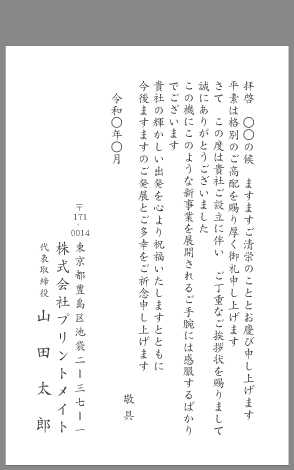 拝啓　〇〇の候　ますますご清栄のこととお慶び申し上げます
平素は格別のご高配を賜り厚く御礼申し上げます
さて　この度は貴社ご設立に伴い　ご丁重なご挨拶状を賜りまして
誠にありがとうございました
この機にこのような新事業を展開されるご手腕には感服するばかり
でございます
貴社の輝かしい出発を心より祝福いたしますとともに
今後ますますのご発展とご多幸をご祈念申し上げます
敬具
令和〇年〇月
〒171-0014
東京都豊島区池袋二ー三七ー一
株式会社プリントメイト
代表取締役　山田太郎